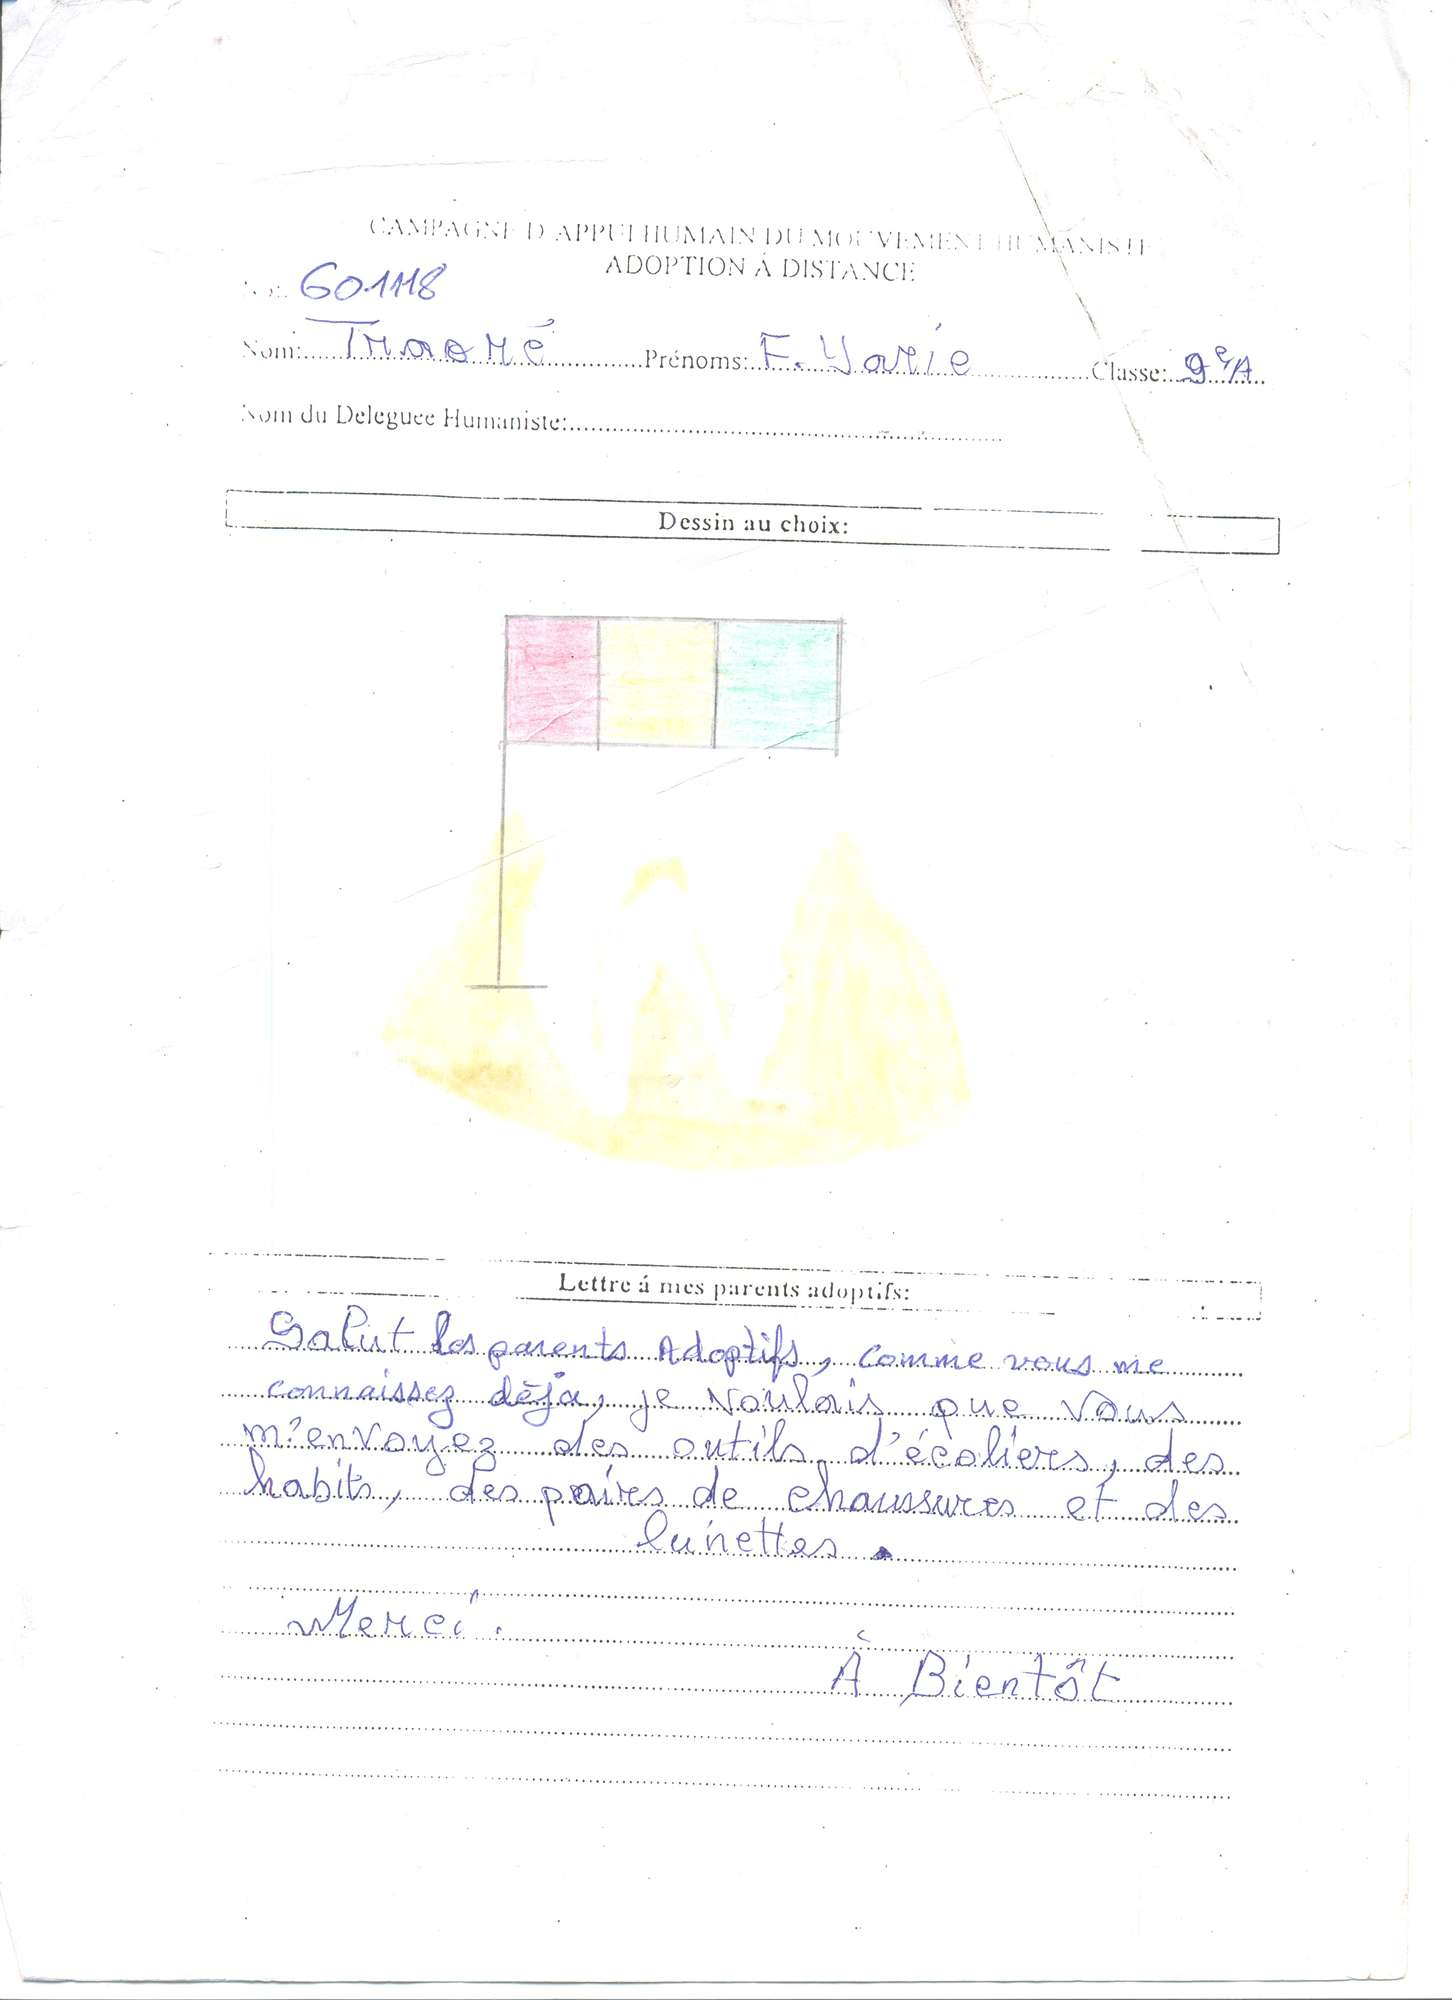 CAMPAGNE D'APPUI HUMAIN DU MOUVEMENT HUMANISTE
ADOPTION Á DISTANCE
601118
Nom: Traoré Prénoms: F. Yarie Classe: 9e/A
Nom du Deleguee Humaniste:
Dessin au choix:
Lettre á mes parents adoptifs:
Salut les parents Adoptifs, comme vous me
connaissez déjà, je voulais que vous
m'envoyez des outils d'écoliers, des
habits, des paires de chaussures et des
lunettes.
Merci.
À Bientôt